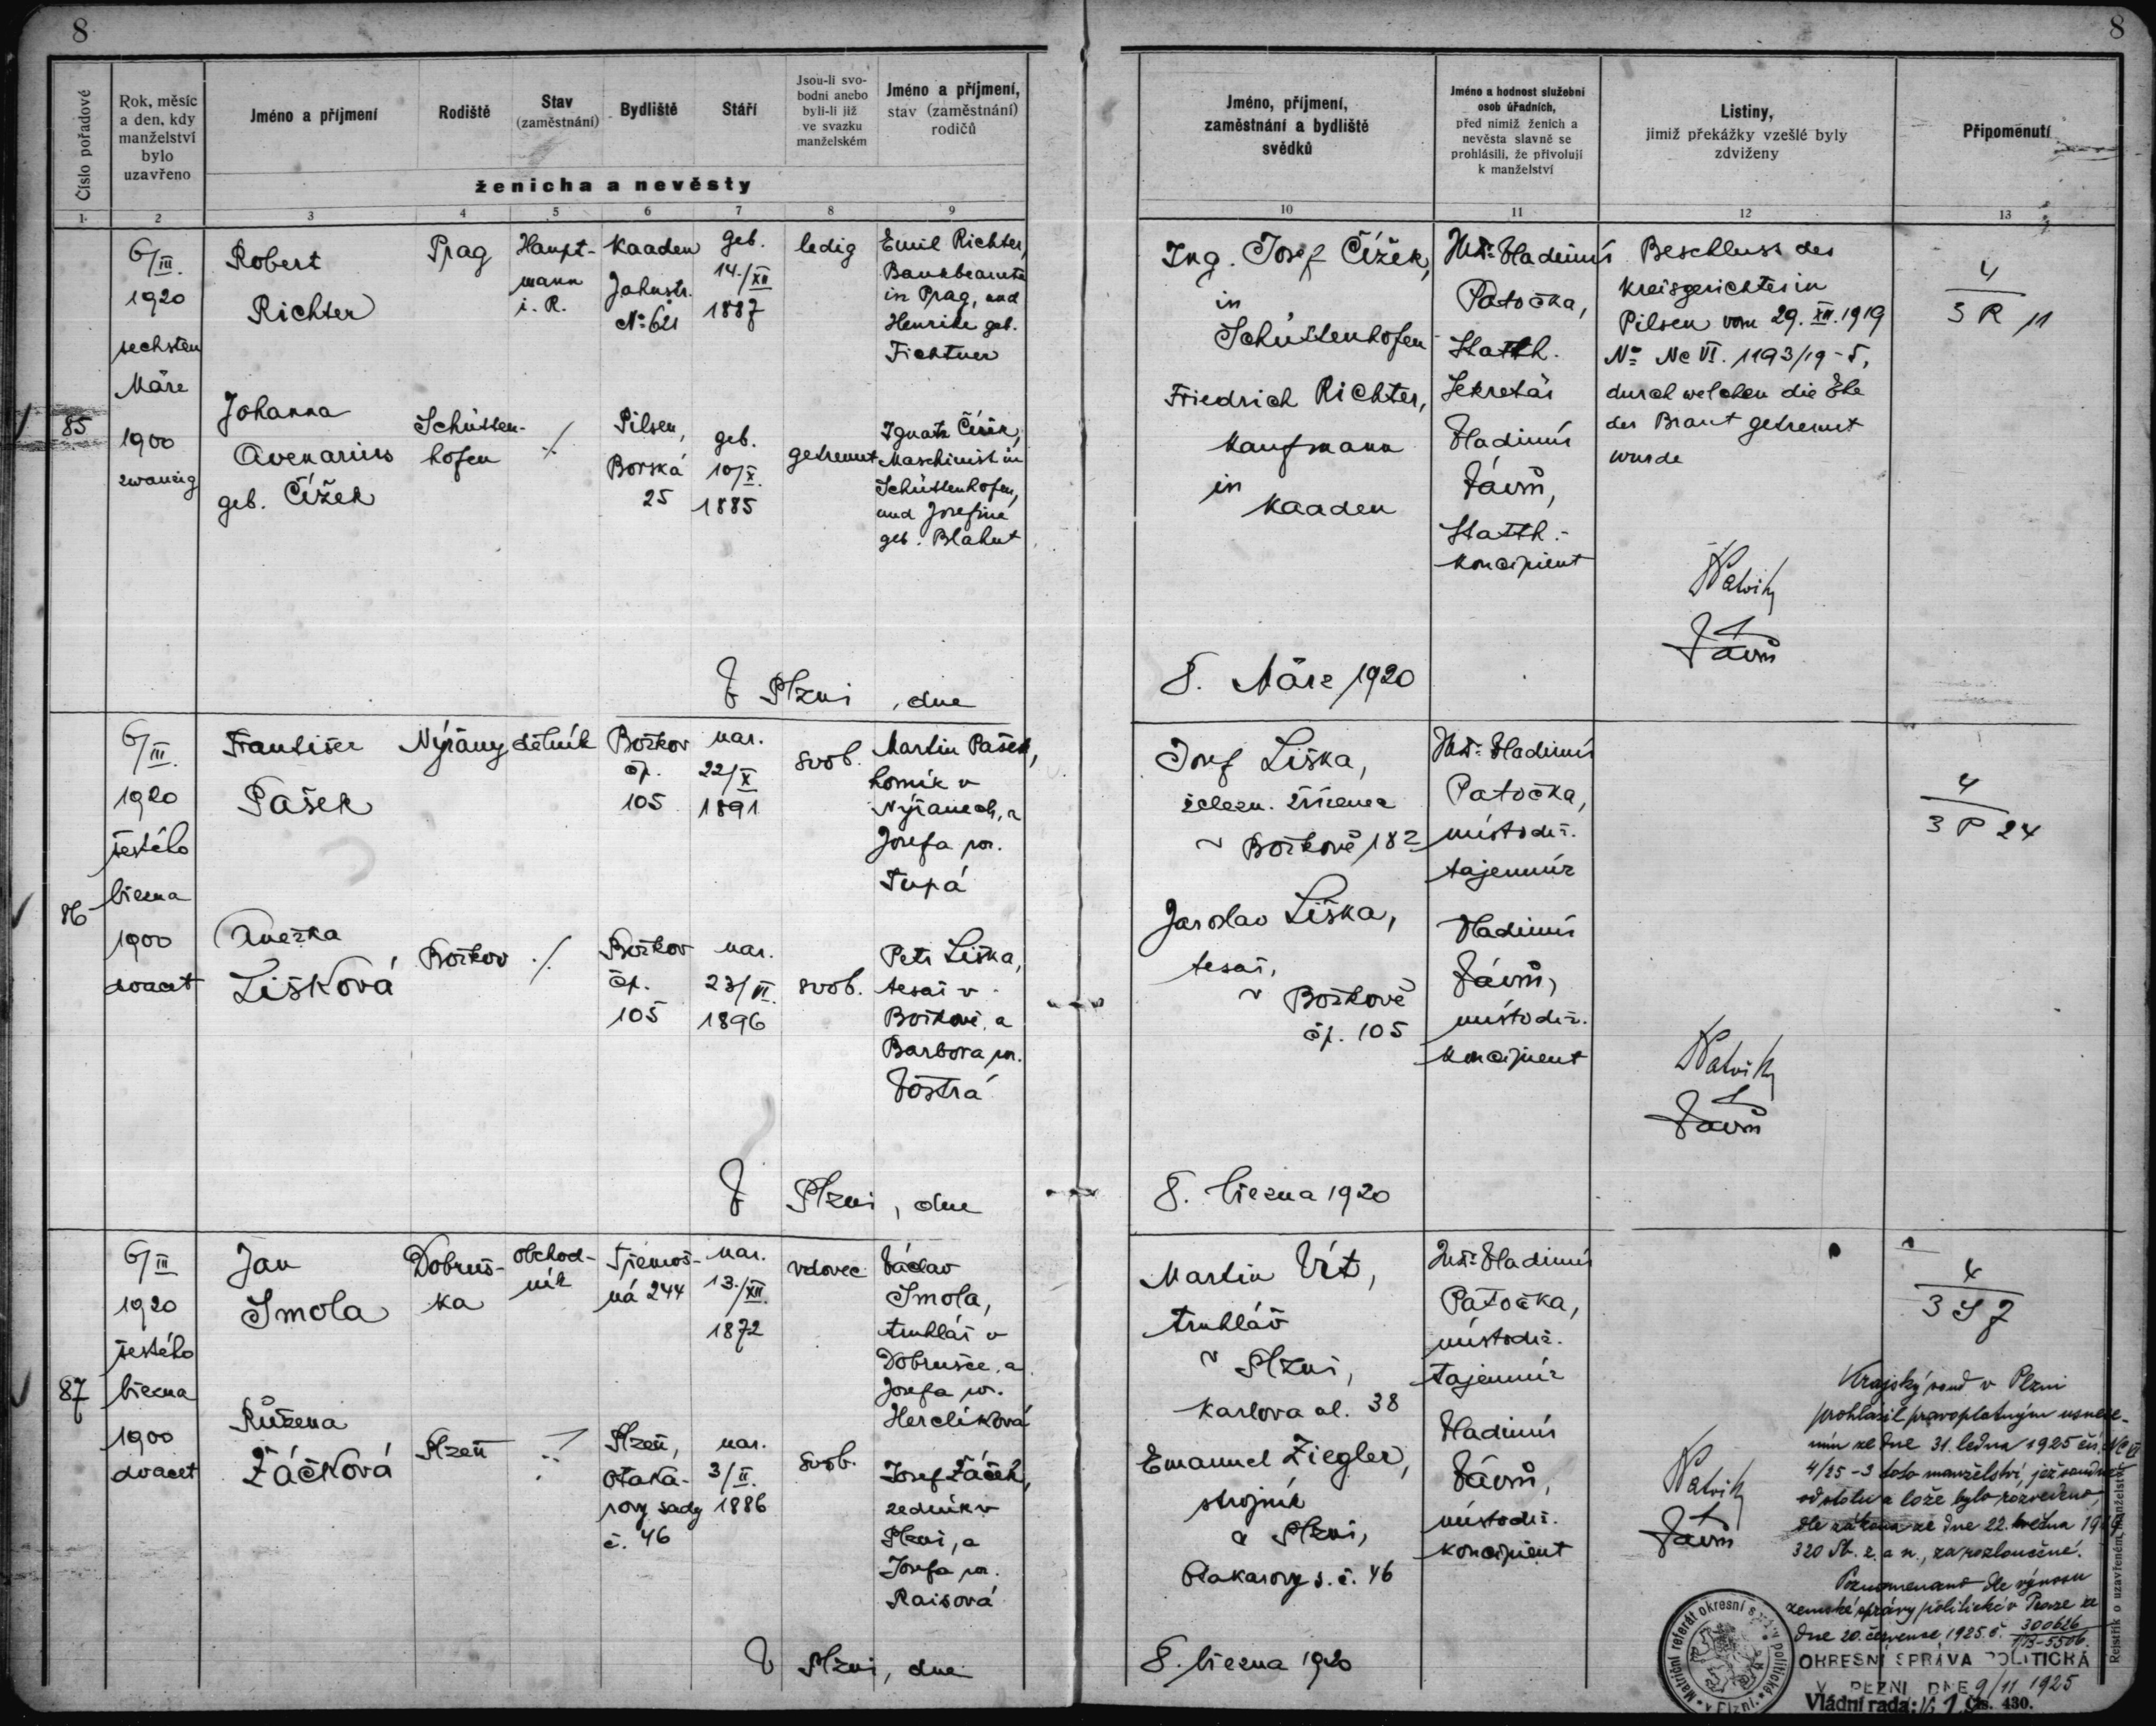 8
8
Číslo pořadové
Rok, měsíc
a den, kdy
manželství
bylo
uzavřeno
Jméno a příjmení
Rodiště
Stav
(zaměstnání)
Bydliště
Stáří
Jsou-li svo-
bodni anebo
byli-li již
ve svazku
manželském
Jméno a příjmení,
stav (zaměstnání)
rodičů
ženicha a nevěsty
Jméno, příjmení,
zaměstnání a bydliště
svědků
Jméno a hodnost služební
osob úřadních,
před nimiž ženich a
nevěsta slavně se
prohlásili, že přivolují
k manželství
Listiny,
jimiž překážky vzešlé byly
zdviženy
Připomenutí
1
2
3
4
5
6
7
8
9
10
11
12
13
85
6/III.
1920
sechsten
März
1900
zwanzig
Robert
Richter
Prag
Haupt-
mann
i. R.
Kaaden
Jahnstr.
No 621
geb.
14./XII
1887
ledig
Emil Richter,
Bankbeamte
in Prag, und
Henrike geb.
Fichtner
Johanna
Avenarius
geb. Čížek
Schütten-
hofen
./.
Pilsen,
Borská
25
geb.
10/X.
1885
getrennt
Ignatz Čížek,
Maschinist in
Schüttenhofen,
und Josefine
geb. Blahut
Ing. Josef Čížek,
in
Schüttenhofen
Friedrich Richter,
Kaufmann
in
Kaaden
JUDr Vladimír
Patočka,
Statth.
Sekretär
Vladimír
Vávrů,
Statth.-
Koncipient
Beschluss des
Kreisgerichtes in
Pilsen vom 29. XII. 1919
No Nc VI. 1193/19-5,
durch welchen die Ehe
der Braut getrennt
wurde
Vávrů
4
3 R 11
V Plzni, dne
8. März 1920
86
6/III.
1920
šestého
března
1900
dvacet
František
Pašek
Nýřany
dělník
Božkov
čp.
105
nar.
22/X
1891
svob.
Martin Pašek,
horník v
Nýřanech, a
Josefa roz.
Tupá
Anežka
Lišková
Božkov
./.
Božkov
čp.
105
nar.
23/VI.
1896
svob.
Petr Liška,
tesař v
Božkově, a
Barbora roz.
Vostrá
Josef Liška,
železn. zřízenec
v Božkově 182
Jaroslav Liška,
tesař,
v Božkově
čp. 105
JUDr Vladimír
Patočka,
místodrž.
tajemník
Vladimír
Vávrů,
místodrž.
koncipient
Vávrů
4
3 P 24
V Plzni, dne
8. března 1920
87
6/III
1920
šestého
března
1900
dvacet
Jan
Smola
Dobruš-
ka
obchod-
ník
Třemoš-
ná 244
nar.
13./XII.
1872
vdovec
Václav
Smola,
truhlář v
Dobrušce, a
Josefa roz.
Hercíková
Růžena
Žáčková
Plzeň
./.
Plzeň,
Otaka-
rovy sady
č. 46
nar.
3/II.
1886
svob.
Josef Žáček,
zedník v
Plzni, a
Josefa roz.
Raisová
Martin Vít,
truhlář
v Plzni,
Karlova ul. 38
Emanuel Ziegler,
strojník
v Plzni,
Otakarovy s. č. 46
JUDr Vladimír
Patočka,
místodrž.
tajemník
Vladimír
Vávrů,
místodrž.
koncipient
Vávrů
4
3 S 7
Krajský soud v Plzni
prohlásil pravoplatným usnese-
ním ze dne 31. ledna 1925 čís. Nc VI
4/25-3 toto manželství, jež soudně
od stolu a lože bylo rozvedeno,
dle zákona ze dne 22. května 1919
320 Sb. z. a n., za rozloučené.
Poznamenáno dle výnosu
zemské správy politické v Praze ze
dne 20. července 1925 č. 300626
17B-5506.
OKRESNÍ SPRÁVA POLITICKÁ
V PLZNI DNE 9/11 1925
Vládní rada:
Čís. 430.
Matriční referát okresní správy politické v Plzni.
V Plzni, dne
8. března 1920
Rejstřík o uzavřeném manželství